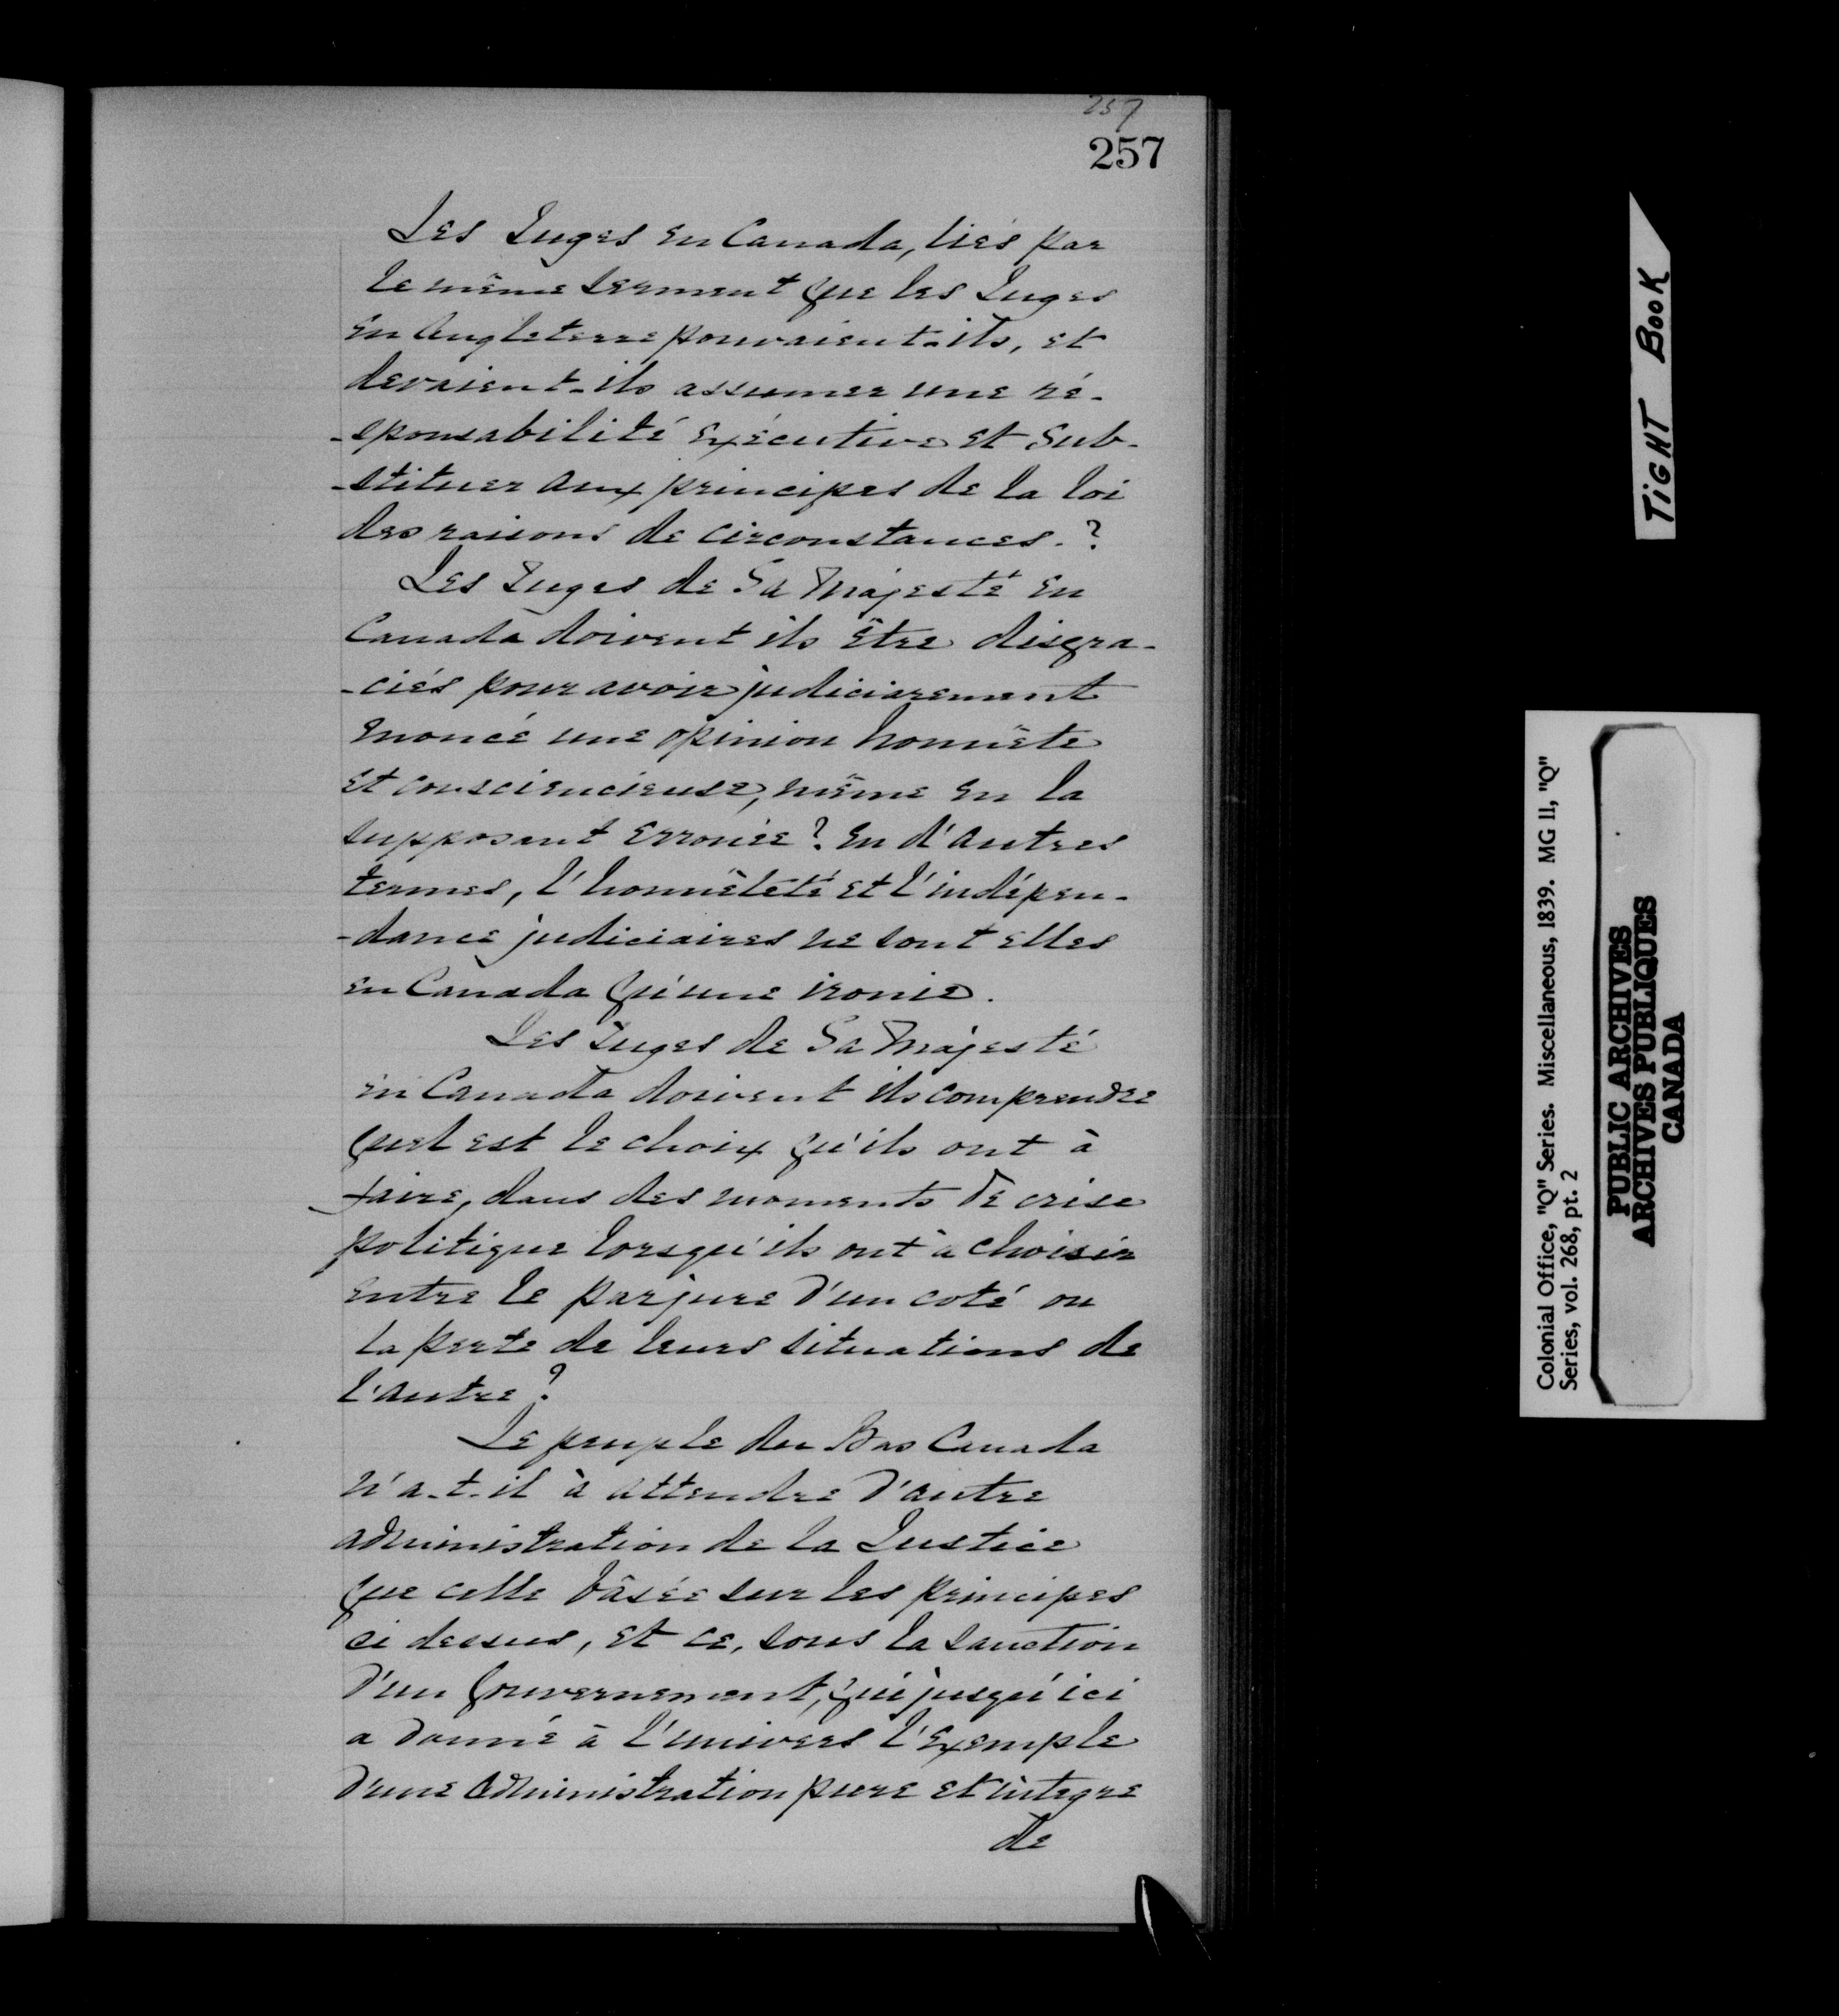 257
257
Les Juges en Canada, liés par
le même serment que les Juges
en Angleterre pouvaient-ils, et
devaient-ils assumer une ré-
-sponsabilité exécutive et sub-
-stituer aux principes de la loi
des raisons de circonstances.?
Les Juges de Sa Majesté en
Canada doivent ils être disgra-
-ciés pour avoir judiciairement
énoncé une opinion honnête
et consciencieuse, même en la
supposant erronée? En d'autres
termes, l'honnêteté et l'indépen-
-dance judiciaires ne sont elles
en Canada qu'une ironie.
Les Juges de Sa Majesté
en Canada doivent ils comprendre
quel est le choix qu'ils ont à
faire, dans des moments de crise
politique lorsqu'ils ont à choisir
entre le parjure d'un coté ou
la perte de leurs situations de
l'autre?
Le peuple du Bas Canada
n'a-t-il à attendre d'autre
administration de la Justice
que celle bâsée sur les principes
ci dessus, et ce, sous la sanction
d'un Gouvernement, qui jusqu'ici
a donné à l'univers l'exemple
d'une administration pure et intègre
de
TIGHT BOOK
Colonial Office, "Q" Series. Miscellaneous, 1839. MG 11, "Q"
Series, vol. 268, pt. 2
PUBLIC ARCHIVES
ARCHIVES PUBLIQUES
CANADA